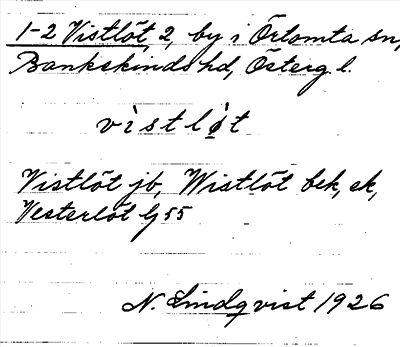 1-2 Vistlöt, 2, by i Örtomta sn,
Bankekinds hd, Österg. l.
v ì s t l ǿ t
Vistlöt jb, Wistlöt bek, ek,
Vesterlöt lj 55
N. Lindqvist 1926